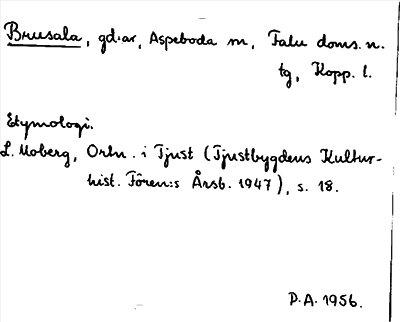 Brusala, gd:ar, Aspeboda sn, Falu doms. n.
tg, Kopp. l.
Etymologi.
L. Moberg, Ortn. i Tjust (Tjustbygdens Kultur-
hist. Fören:s Årsb. 1947), s. 18.
D.A. 1956.